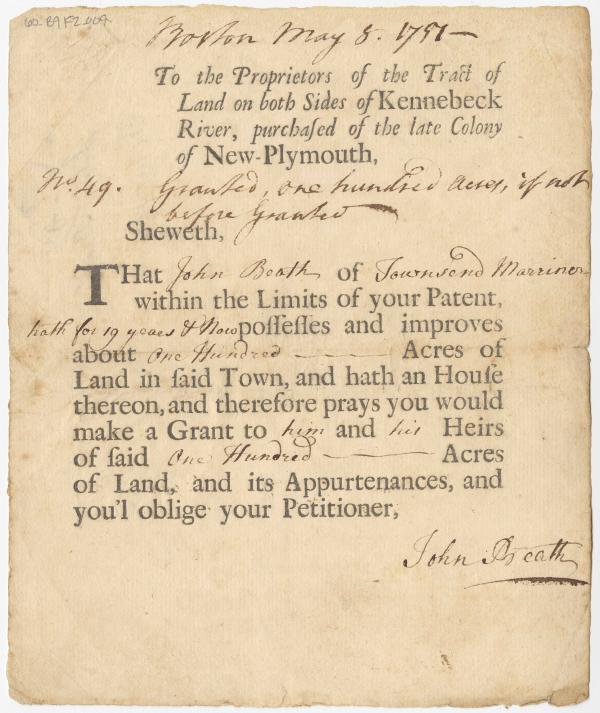 60.89 F2.009
Boston May 8. 1751 —
To the Proprietors of the Tract of
Land on both Sides of Kennebeck
River, purchaſed of the late Colony
of New-Plymouth,
No. 49. Granted, one hundred acres, if not
before Granted
Sheweth,
THat John Beath of Townsend Marriner
within the Limits of your Patent,
hath for 19 years & Now poſſeſſes and improves
about One Hundred — Acres of
Land in ſaid Town, and hath an Houſe
thereon, and therefore prays you would
make a Grant to him and his Heirs
of ſaid One Hundred — Acres
of Land, and its Appurtenances, and
you'l oblige your Petitioner,
John Beath